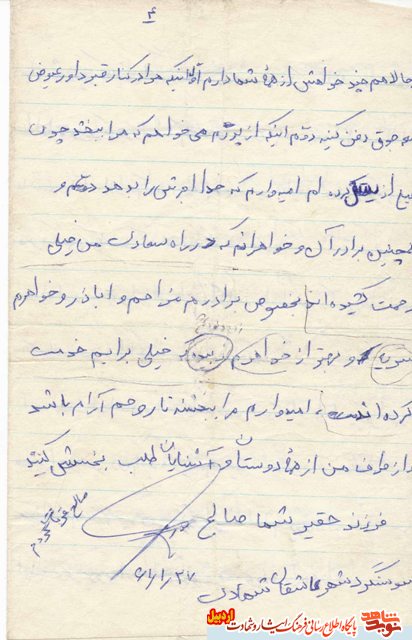 ۴
حالا هم چند خواهش از همهٔ شما دارم اولا اینکه مرا در کنار قبر داور عیوض
دفن کنید دوم اینکه از پدرم می خواهم که مرا ببخشد چون
کرده ام امیدوارم که خدا اجرش را بدهد و
همچنین برادران و خواهرانم که در راه من خیلی
زحمت کشیده اند بخصوص برادرم مزاحم و اباذر و خواهرم
و بهتر از خواهرم که خیلی برایم خدمت
کرده است، امیدوارم مرا ببخشند تا روحم آرام باشد
از طرف من از همهٔ دوستان و آشنایان طلب بخشش کنید
فرزند حقیر شما صالح
۶۱/۱/۲۷
سوسنگرد شهر عاشقان شهادت
نوید شاهد
پایگاه اطلاع رسانی فرهنگ ایثار و شهادت
اردبیل